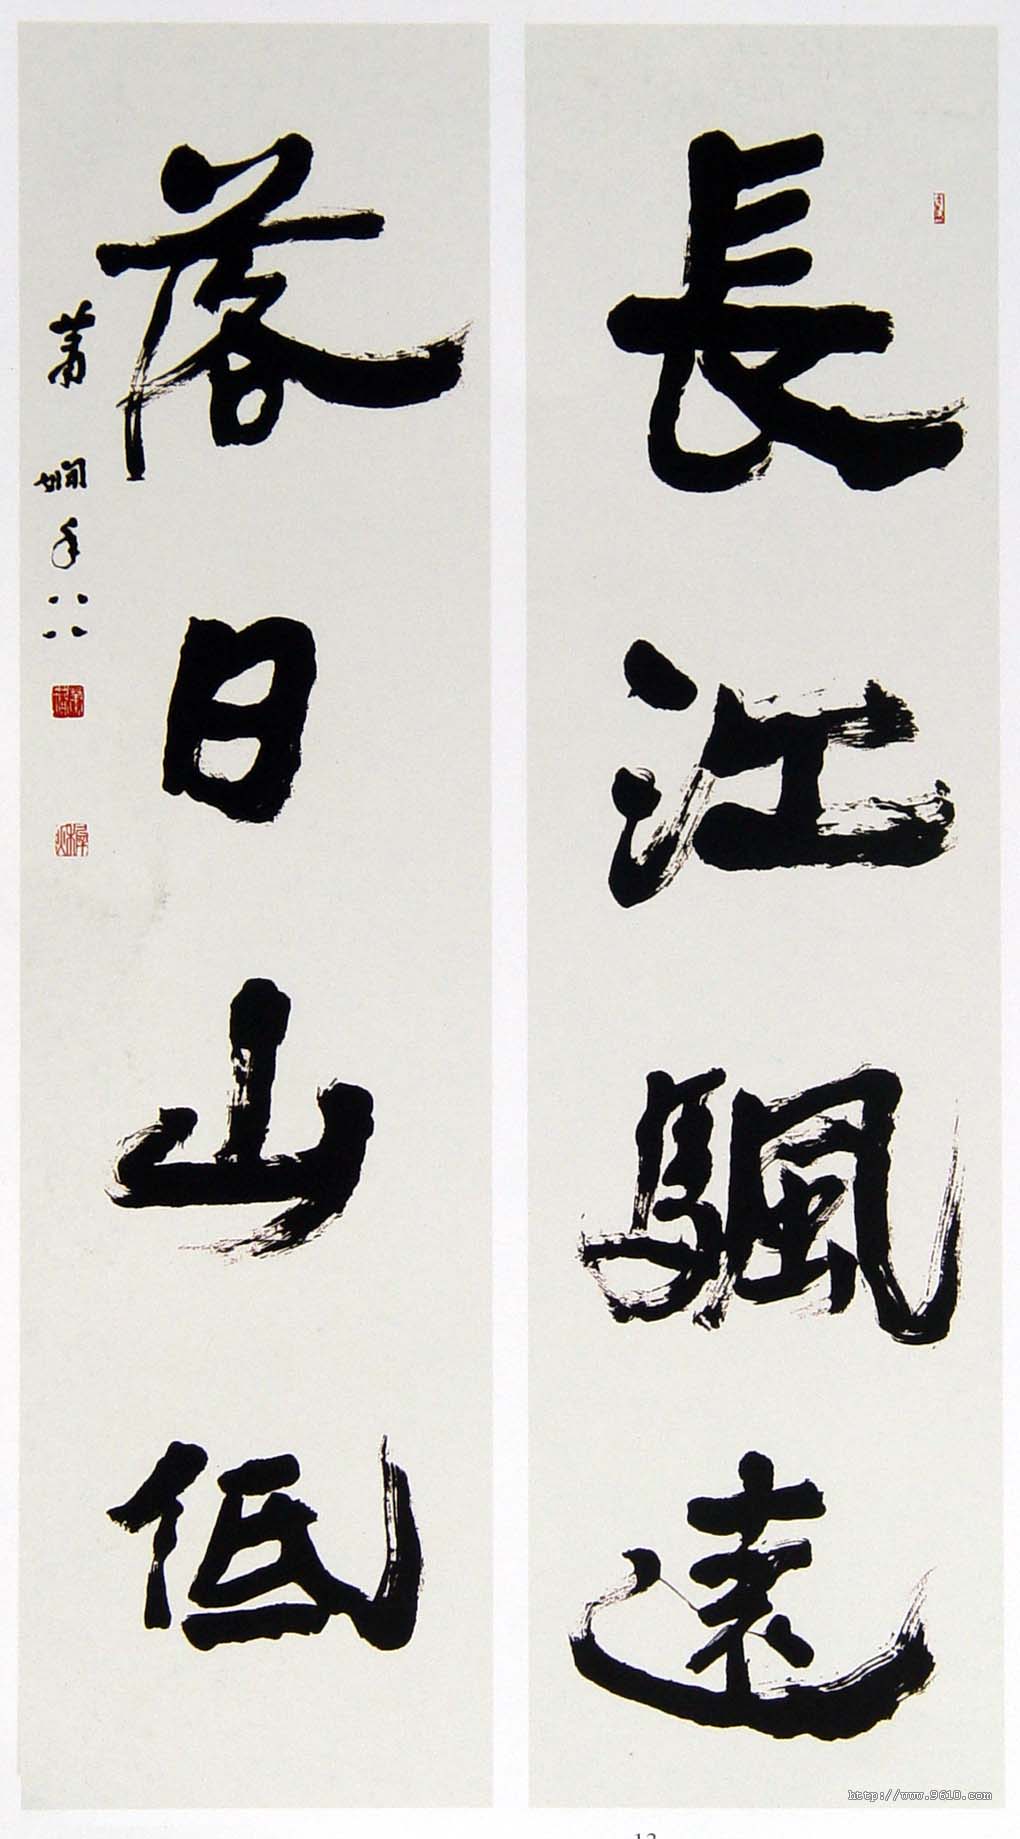 長江颿遠
落日山低
蕭嫻年八八
http://www.9610.com